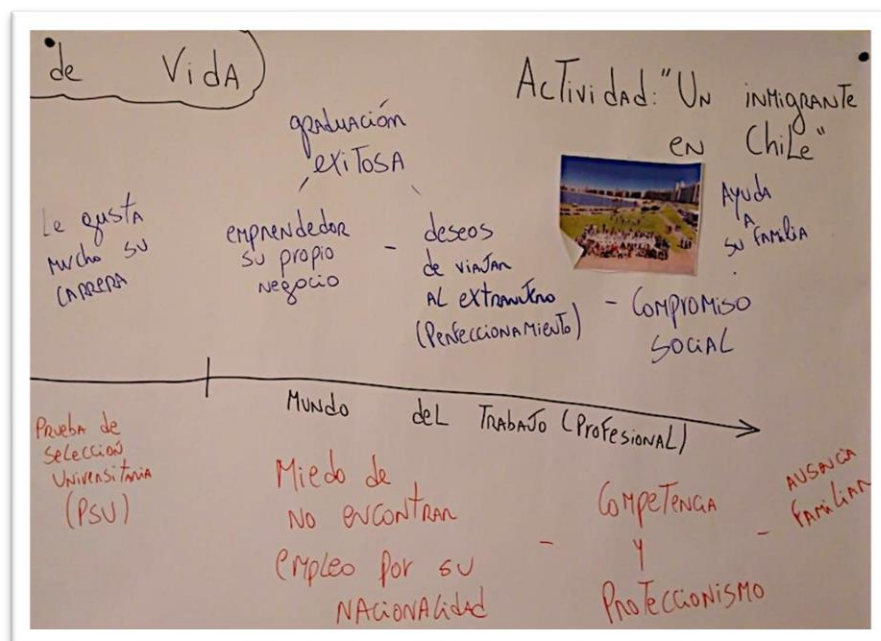 de Vida
Actividad: "Un inmigrante
en Chile"
graduación
exitosa
Le gusta
mucho su
carrera
emprendedor
su propio
negocio
-
deseos
de viajar
al extranjero
(Perfeccionamiento)
- Compromiso
social
Ayuda
a
su familia
Mundo del Trabajo (Profesional)
Prueba de
selección
Universitaria
(PSU)
Miedo de
no encontrar
empleo por su
nacionalidad
-
Competencia
y
Proteccionismo
- Ausencia
familiar